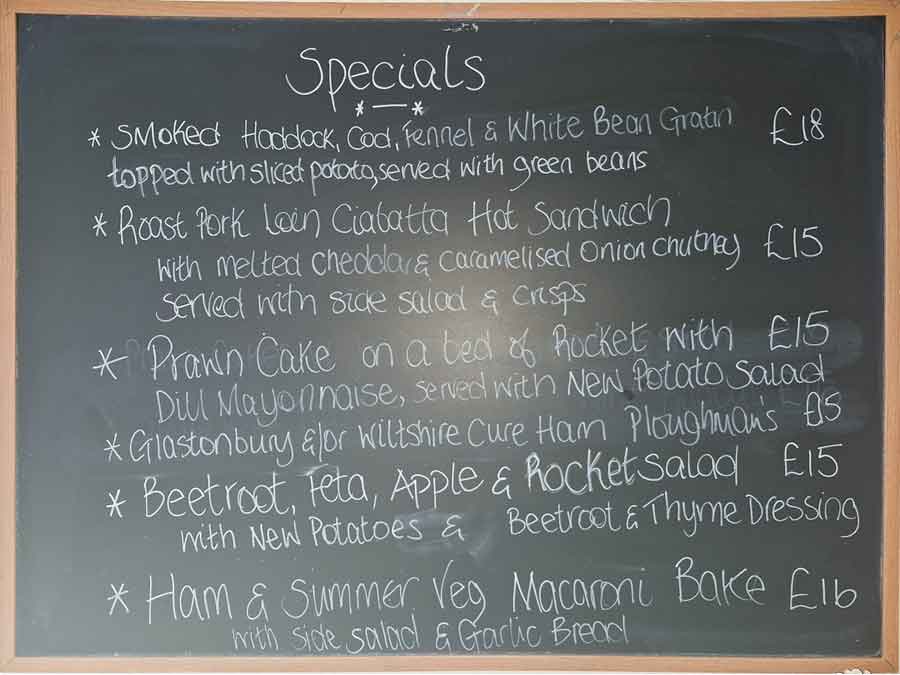 Specials
* — *
* Smoked Haddock, Cod, Fennel & White Bean Gratin £18
topped with sliced potato, served with green beans
* Roast Pork Loin Ciabatta Hot Sandwich
with melted cheddar & caramelised onion chutney £15
served with side salad & crisps
* Prawn Cake on a bed of Rocket with £15
Dill Mayonnaise, served with New Potato Salad
* Glastonbury &/or Wiltshire Cure Ham Ploughman's £15
* Beetroot, Feta, Apple & Rocket Salad £15
with New Potatoes & Beetroot & Thyme Dressing
* Ham & Summer Veg Macaroni Bake £16
with side salad & Garlic Bread